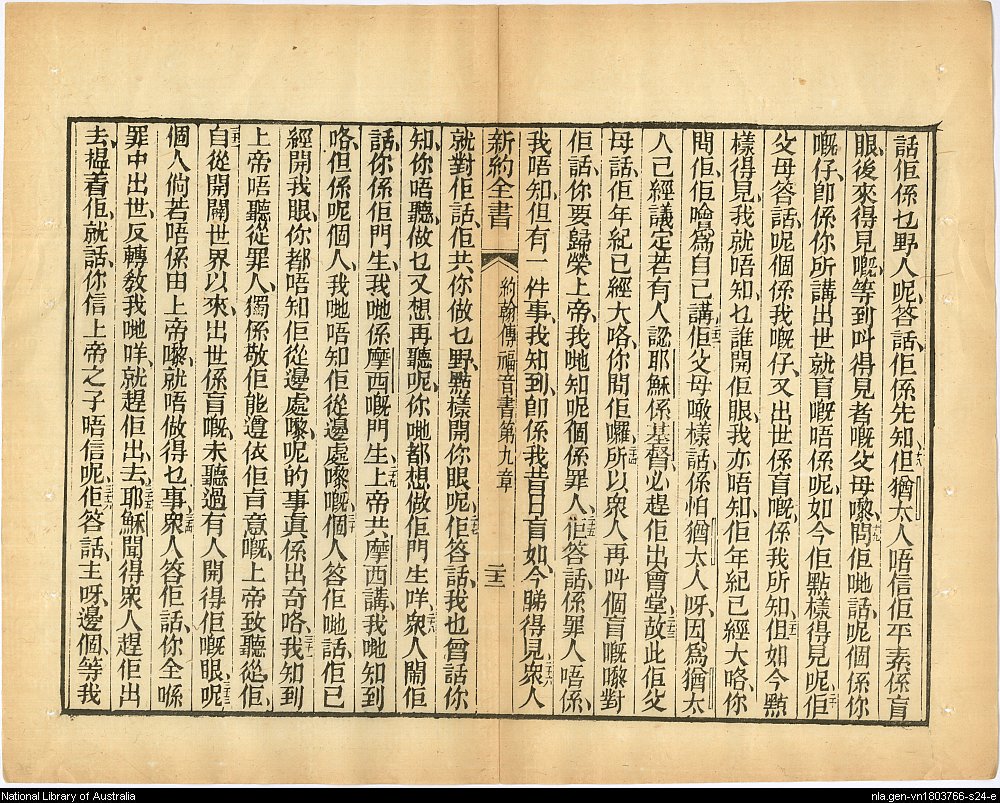 話佢係乜野人呢、答話、佢係先知、十八但猶太人唔信佢平素係盲
眼、後來得見嘅、等到叫得見者嘅父母嚟、十九問佢哋話、呢個係你
嘅仔、即係你所講出世就盲嘅唔係呢、如今佢點樣得見呢、二十佢
父母答話、呢個係我嘅仔、又出世係盲嘅、係我所知、二一但如今點
樣得見、我就唔知、乜誰開佢眼、我亦唔知、佢年紀已經大咯、你
問佢、佢噲爲自己講、二二佢父母噉樣話、係怕猶太人呀、因爲猶太
人已經議定、若有人認耶穌係基督、必趕佢出會堂、二三故此佢父
母話、佢年紀已經大咯、你問佢囉、二四所以衆人再叫個盲嘅嚟、對
佢話、你要歸榮上帝、我哋知呢個係罪人、二五佢答話、係罪人唔係、
我唔知、但有一件事、我知到、即係我昔日盲、如今睇得見、二六衆人
新約全書 約翰傳福音書第九章 二十二
就對佢話、佢共你做乜野、點樣開你眼呢、二七佢答話、我也曾話你
知、你唔聽、做乜又想再聽呢、你哋都想做佢門生咩、二八衆人鬧佢
話、你係佢門生、我哋係摩西嘅門生、二九上帝共摩西講、我哋知到
咯、但係呢個人、我哋唔知佢從邊處嚟嘅、三十個人答佢哋話、佢已
經開我眼、你都唔知佢從邊處嚟、呢的事眞係出奇咯、三一我知到
上帝唔聽從罪人、獨係敬佢能遵依佢旨意嘅、上帝致聽從佢、
三二自從開闢世界以來、出世係盲嘅、未聽過有人開得佢嘅眼、三三呢
個人倘若唔係由上帝嚟、就唔做得乜事、三四衆人答佢話、你全喺
罪中出世、反轉教我哋咩、就趕佢出去、三五耶穌聞得衆人趕佢出
去、揾着佢、就話、你信上帝之子唔信呢、三六佢答話、主呀、邊個、等我
National Library of Australia
nla.gen-vn1803766-s24-e